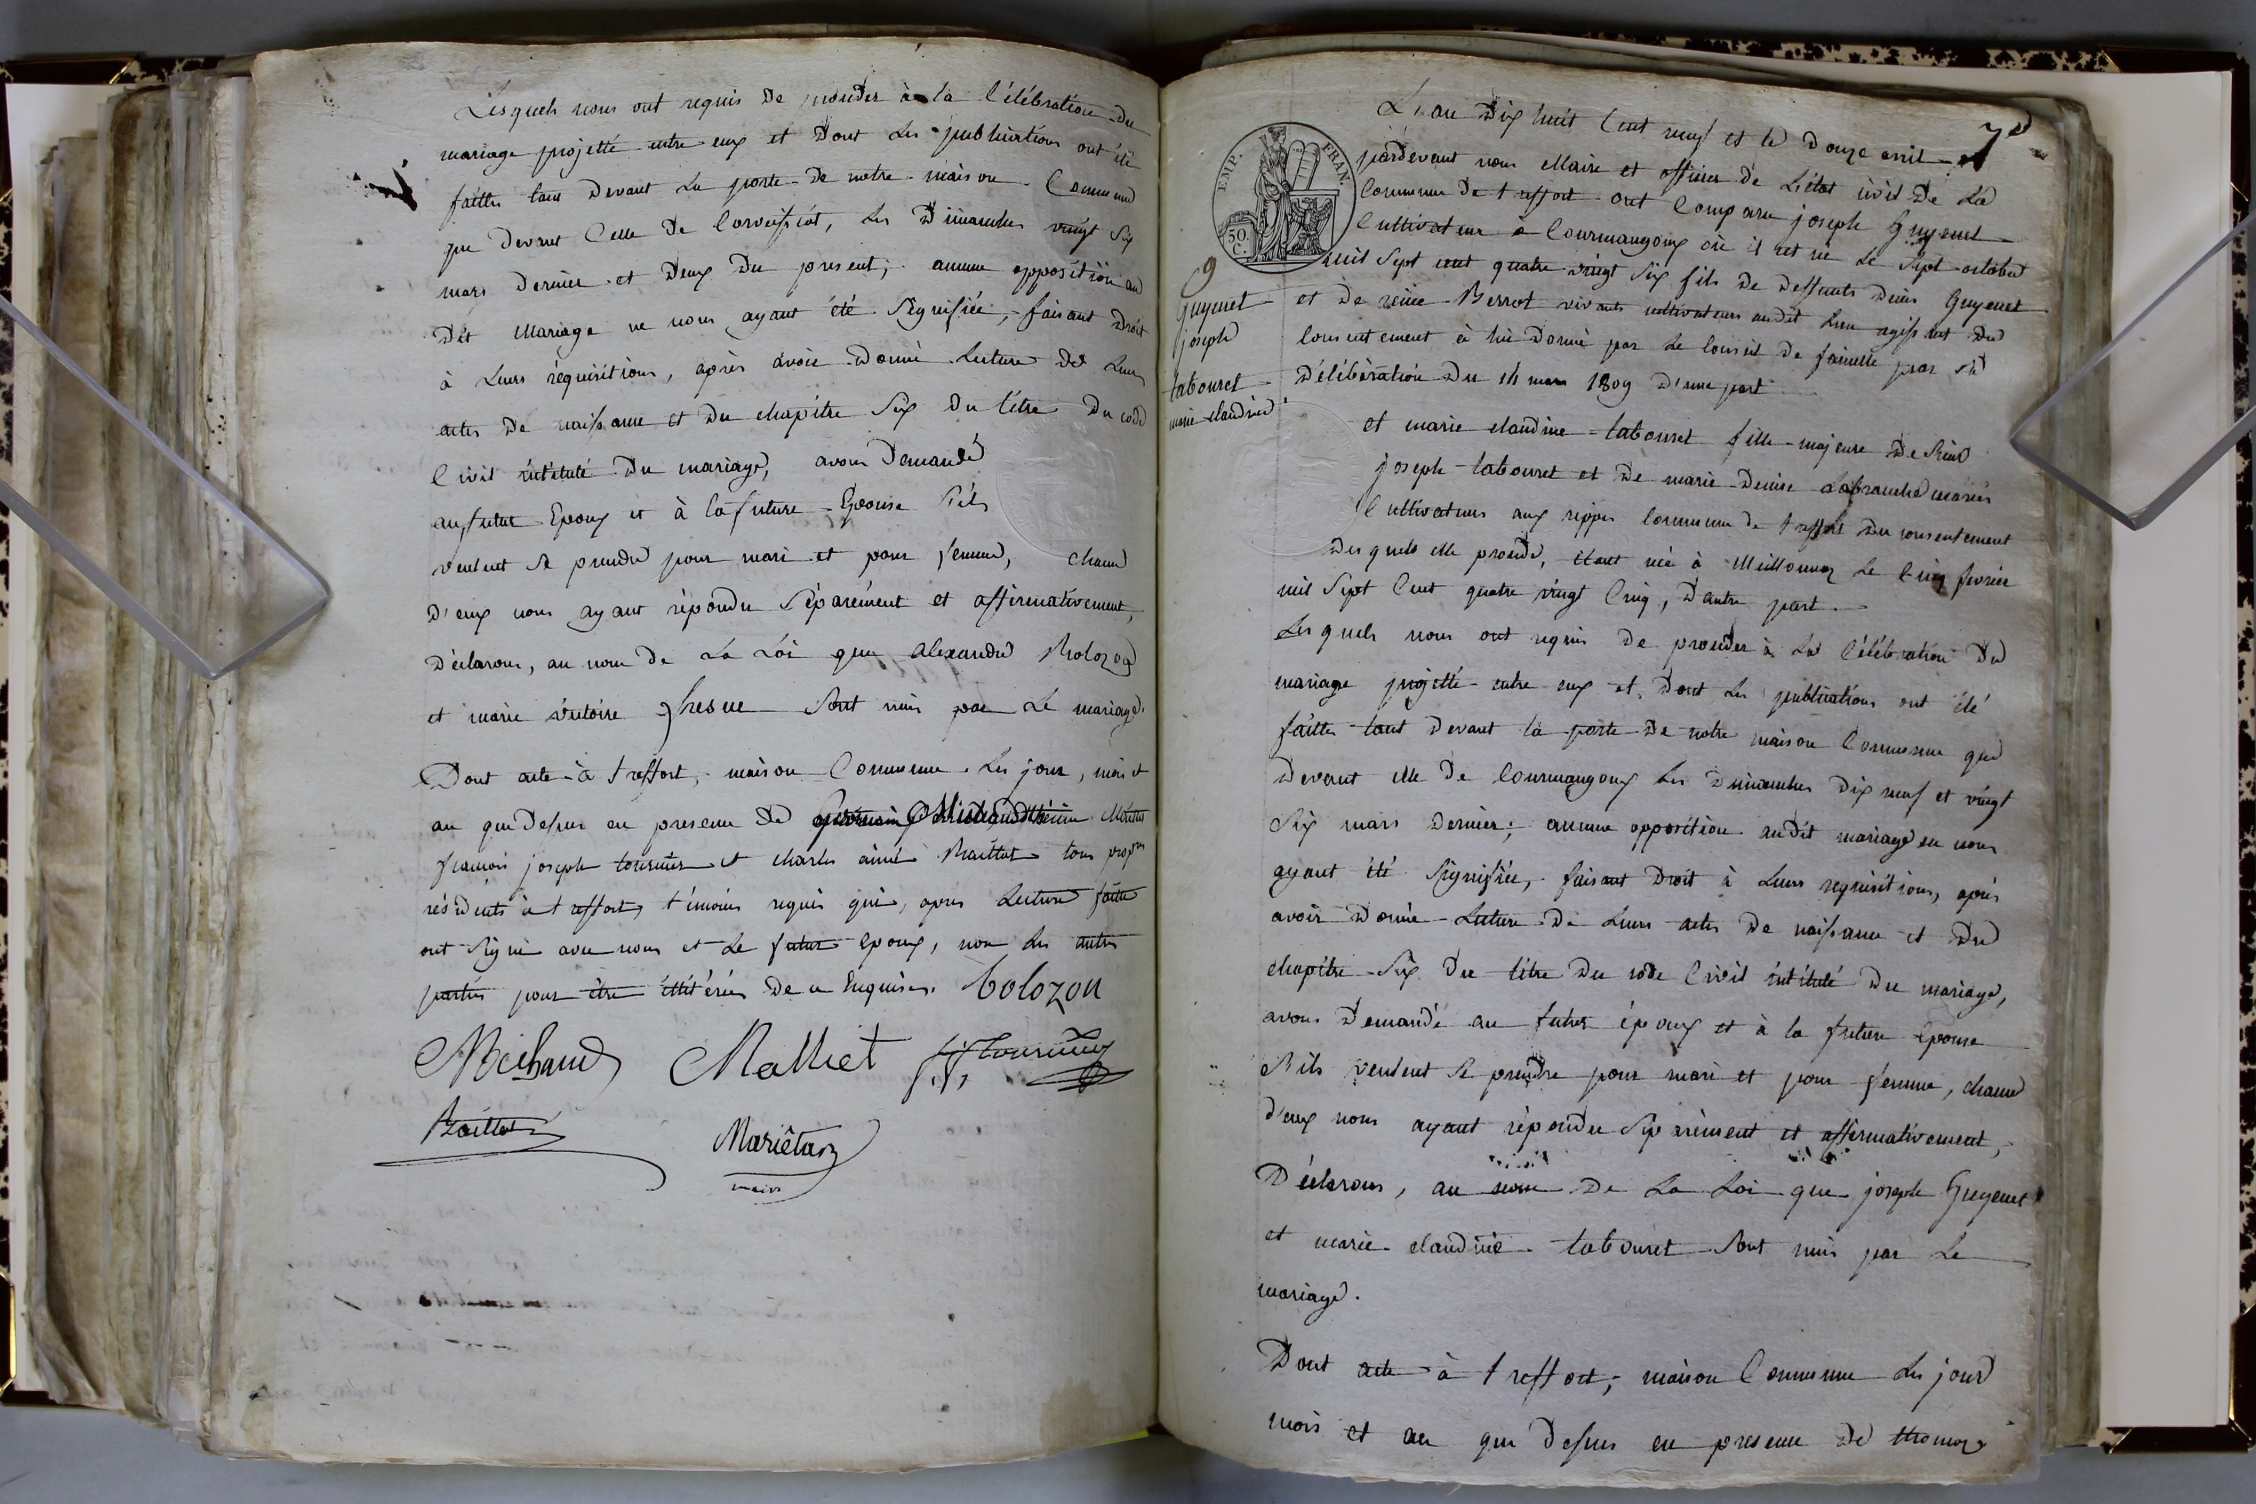 Lesquels nous ont requis de proceder à la Célébration du
mariage projetté entre eux et dont les publications ont été
faittes tant devant la porte de notre maison Commune
que devant Celle de Corveissiat, les Dimanches vingt six
mars dernier et deux du present; aucune opposition au
dit Mariage ne nous ayant été Signifiée, faisant droit
à Leurs réquisitions, après avoir donné Lecture de Leurs
actes de naissance et du chapitre Six du titre du code
Civil intitulé du mariage, avons demandé
au futur Epoux et à la future Epouse S'ils
veulent se prendre pour mari et pour femme, chacun
d'eux nous ayant répondu Séparément et affirmativement,
déclarons, au nom de La Loi que alexandre Bolozon
et marie victoire sont unis par Le mariage.
Dont acte à treffort, maison Commune Les jour, mois et
an que dessus en presence de
francois joseph tournier et charles aimé Baillat tous prop.res
résidents à treffort, témoins requis qui, apres Lecture faitte
ont Signé avec nous et Le futur epoux, non les autres
parties pour être illitérées de ce Enquises. bolozon
Michaud Malliet f. j. tournier
Baillat Mariétan
maire
7e
EMP. FRAN.
30. C.
9
Guyenet
joseph
tabouret
marie claudine
L'an Dix huit Cent neuf et le douze avril
pardevant nous Maire et officier de L'état civil de La
Commune de treffort ont Comparu joseph Guyenet
Cultivateur à Courmangoux où il est né Le Sept octobre
mil Sept cent quatre vingt Six fils de deffunts denis Guyenet
et de reine Berrot vivants cultivateurs audit Lieu agissant du
Consentement à lui donné par Le Conseil de famille par sa
délibération du 14 mars 1809 d'une part
et marie claudine tabouret fille majeure de Sieur
joseph tabouret et de marie denise Labranche mariés
Cultivateurs aux rippes Commune de treffort du consentement
desquels elle procede, étant née à Meillonnaz Le Cinq fevrier
mil Sept Cent quatre vingt Cinq, d'autre part.
Lesquels nous ont requis de proceder à La Célébration du
mariage projetté entre eux et dont les publications ont été
faittes tant devant la porte de notre maison Commune que
devant celle de Courmangoux les dimanches dix neuf et vingt
Six mars dernier; aucune opposition audit mariage ne nous
ayant été Signifiée, faisant droit à Leurs requisitions, après
avoir donné Lecture de Leurs actes de naissance et du
chapitre Six du titre du code Civil intitulé du mariage,
avons demandé au futur époux et à la future épouse
S'ils veulent se prendre pour mari et pour femme, chacun
d'eux nous ayant répondu Séparément et affirmativement,
Déclarons, au nom de La Loi que joseph Guyenet
et marie claudine tabouret Sont unis par Le
mariage.
Dont acte à treffort, maison Commune les jour
mois et an que dessus en presence de thomas